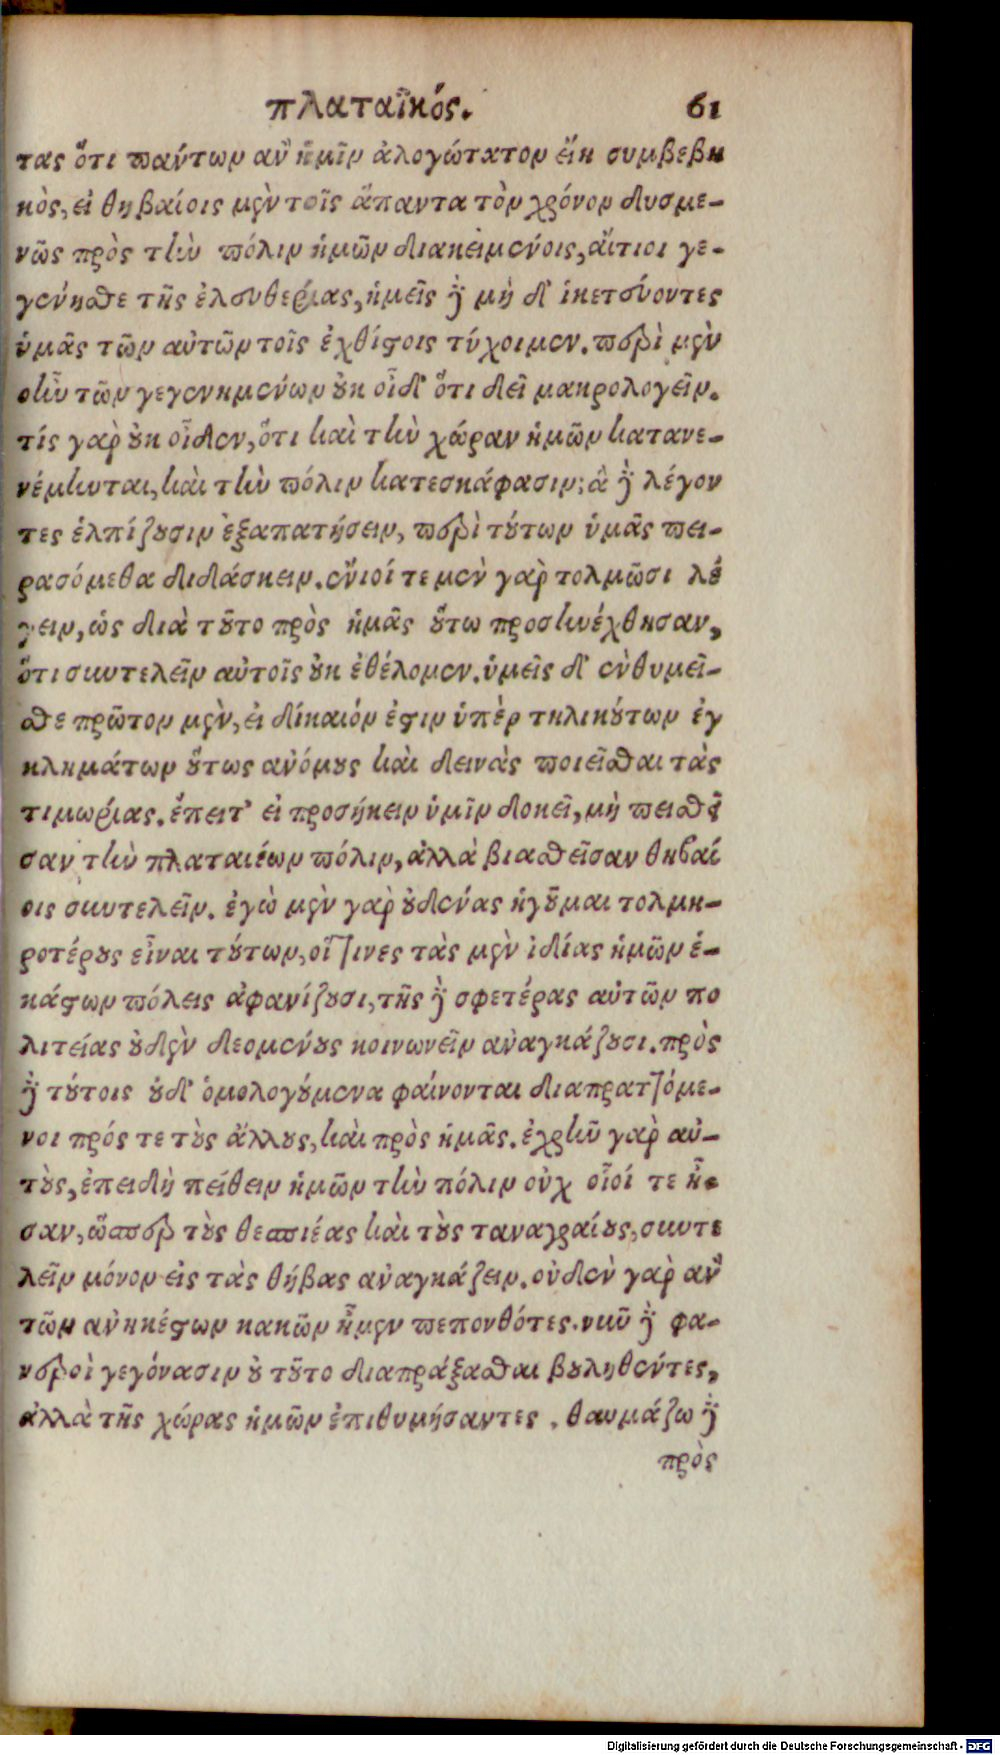 πλαταϊκός. 61
τας ὅτι πάντων ἂν ἡμῖν ἀλογώτατον εἴη συμβεβη
κὸς, εἰ θηβαίοις μὲν τοῖς ἅπαντα τὸν χρόνον δυσμε-
νῶς πρὸς τὴν πόλιν ἡμῶν διακειμένοις, αἴτιοι γε-
γένησθε τῆς ἐλευθερίας, ἡμεῖς δὲ μὴ δ' ἱκετεύοντες
ὑμᾶς τῶν αὐτῶν τοῖς ἐχθίστοις τύχοιμεν. περὶ μὲν
οὖν τῶν γεγενημένων οὐκ οἶδ' ὅτι δεῖ μακρολογεῖν.
τίς γὰρ οὐκ οἶδεν, ὅτι καὶ τὴν χώραν ἡμῶν κατανε-
νέμηνται, καὶ τὴν πόλιν κατεσκάφασιν; ἃ δὲ λέγον
τες ἐλπίζουσιν ἐξαπατήσειν, περὶ τούτων ὑμᾶς πει-
ρασόμεθα διδάσκειν. ἔνιοί τε μὲν γὰρ τολμῶσι λέ
γειν, ὡς διὰ τοῦτο πρὸς ἡμᾶς οὕτω προσηνέχθησαν,
ὅτι συντελεῖν αὐτοῖς οὐκ ἐθέλομεν. ὑμεῖς δ' ἐνθυμεῖ-
σθε πρῶτον μὲν, εἰ δίκαιόν ἐστιν ὑπὲρ τηλικούτων ἐγ
κλημάτων οὕτως ἀνόμους καὶ δεινὰς ποιεῖσθαι τὰς
τιμωρίας. ἔπειτ' εἰ προσήκειν ὑμῖν δοκεῖ, μὴ πεισθεῖ
σαν τὴν πλαταιέων πόλιν, ἀλλὰ βιασθεῖσαν θηβαί
οις συντελεῖν. ἐγὼ μὲν γὰρ οὐδένας ἡγοῦμαι τολμη-
ροτέρους εἶναι τούτων, οἵτινες τὰς μὲν ἰδίας ἡμῶν ἑ-
κάστων πόλεις ἀφανίζουσι, τῆς δὲ σφετέρας αὐτῶν πο
λιτείας οὐδὲν δεομένους κοινωνεῖν ἀναγκάζουσι. πρὸς
δὲ τούτοις οὐδ' ὁμολογούμενα φαίνονται διαπραττόμε-
νοι πρός τε τοὺς ἄλλους, καὶ πρὸς ἡμᾶς. ἐχρῆν γὰρ αὐ-
τοὺς, ἐπειδὴ πείθειν ἡμῶν τὴν πόλιν οὐχ οἷοί τε ἦ-
σαν, ὥσπερ τοὺς θεσπιέας καὶ τοὺς ταναγραίους, συντε
λεῖν μόνον εἰς τὰς θήβας ἀναγκάζειν. οὐδὲν γὰρ ἂν
τῶν ἀνηκέστων κακῶν ἦμεν πεπονθότες. νῦν δὲ φα-
νεροὶ γεγόνασιν οὐ τοῦτο διαπράξασθαι βουληθέντες,
ἀλλὰ τῆς χώρας ἡμῶν ἐπιθυμήσαντες. θαυμάζω δὲ
πρὸς
Digitalisierung gefördert durch die Deutsche Forschungsgemeinschaft - DFG